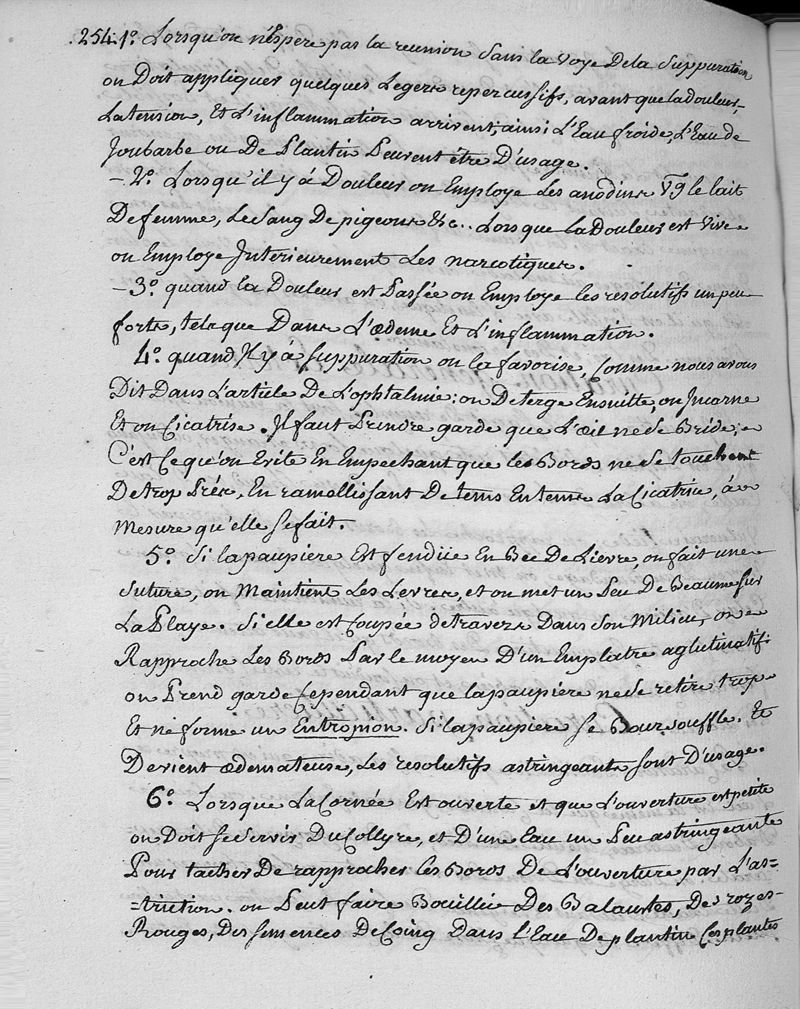 .254. 1.° Lorsqu'on n'éspere pas la reunion Sans la Voye De la Suppuration
on Doit appliquer quelques Legers repercussifs, avant que la douleur,
La tension, Et L'inflammation arrivent; ainsi L'Eau froide, L'Eau de
Joubarbe ou De Plantin Peuvent être D'usage.
– 2.° Lorsqu'il y á Douleur on Employe Les anodins V.g le lait
De femme, Le Sang De pigeons &c.. Lorsque la Douleur est Vive
on Employe Interieurement Les narcotiques.
– 3.° quand la Douleur est Passée on Employe les resolutifs un peu
forts, tels que Dans L'œdeme Et L'inflammation.
4.° quand Il y á Suppuration on la favorise, Comme nous avons
Dit Dans L'article De L'ophtalmie; on Deterge Ensuitte, on Jncarne
Et on Cicatrise. Jl faut Prendre garde que L'œil ne Se Bride;
C'est Ce qu'on Evite En Empechant que les Bords ne Se touchent
De trop Prés, En ramollissant De tems En tems La Cicatrice, á
Mesure qu'elle se fait.
5.° Si la paupiere Est fendüe En Bec De Lievre, on fait une
Suture, on Maintient Les Levres, et on met un Peu De Beaume sur
La Playe. Si elle est Coupée de travers Dans Son Milieu, on
Rapproche Les Bords Par le moyen D'un Emplatre aglutinatif
on Prend garde Cependant que la paupiere ne Se retire trop
Et ne forme un Entropion. Si la paupiere Se Boursouffle. Et
Devient œdemateuse, Les resolutifs astringeants Sont D'usage.
6.° Lorsque La Cornée Est ouverte et que L'ouverture est petite
on Doit Se Servir Du Collyre, et D'une Eau un Peu astringeante
Pour tacher De rapprocher les Bords De L'ouverture par L'as=
=triction. on Peut faire Boüillir Des Balaustes, Des rozes-
Rouges, Des semences De Coing Dans l'Eau De plantin Ces plantes